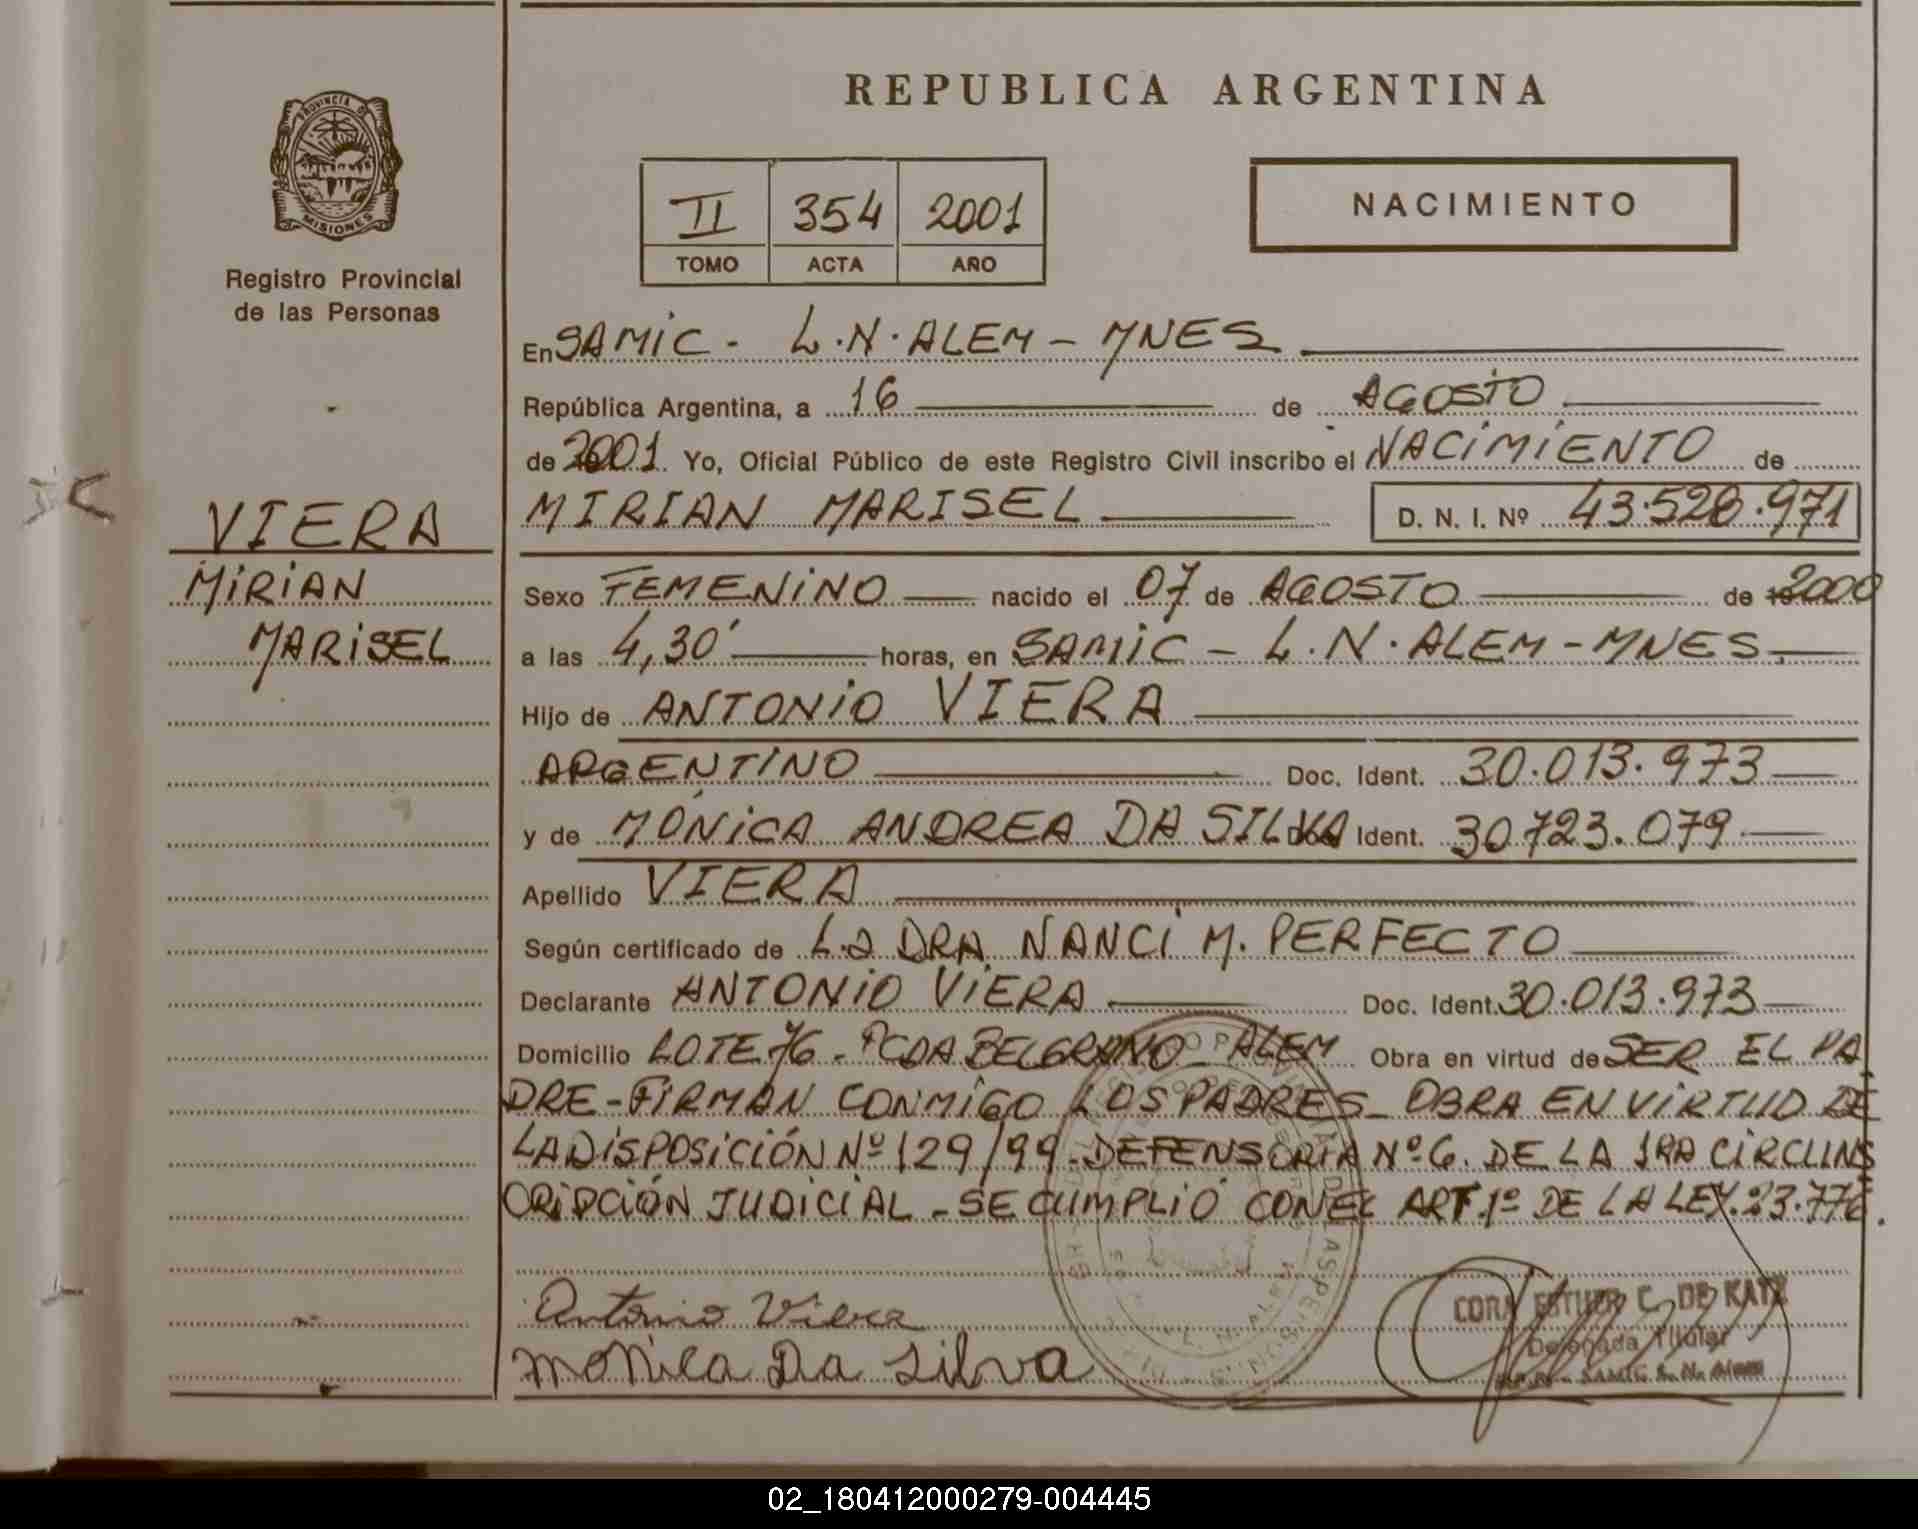 REPUBLICA ARGENTINA
PROVINCIA DE
MISIONES
Registro Provincial
de las Personas
II 354 2001
TOMO ACTA AÑO
NACIMIENTO
En SAMIC - L.N. ALEM - MNES
República Argentina, a 16 de AGOSTO
de 2001 Yo, Oficial Público de este Registro Civil inscribo el NACIMIENTO de
MIRIAN MARISEL D. N. I. Nº 43.528.971
VIERA
MIRIAN
MARISEL
Sexo FEMENINO nacido el 07 de AGOSTO de 2000
a las 4,30' horas, en SAMIC - L.N. ALEM - MNES.
Hijo de ANTONIO VIERA
ARGENTINO Doc. Ident. 30.013.973
y de MÓNICA ANDREA DA SILVA Doc. Ident. 30723.079
Apellido VIERA
Según certificado de La DRA NANCI M. PERFECTO
Declarante ANTONIO VIERA Doc. Ident. 30.013.973
Domicilio LOTE 76 - PCDA BELGRANO - ALEM Obra en virtud de SER EL PA
DRE - FIRMAN CONMIGO LOS PADRES - OBRA EN VIRTUD DE
LA DISPOSICIÓN Nº 129/99 - DEFENSORIA Nº 6. DE LA 1RA CIRCUNS
CRIPCIÓN JUDICIAL - SE CUMPLIO CON EL ART. 1º DE LA LEY. 23.776.
Antonio Viera
Monica Da Silva
CORA ESTHER C. DE KATZ
Delegada Titular
SAMIC L. N. Alem
02_180412000279-004445